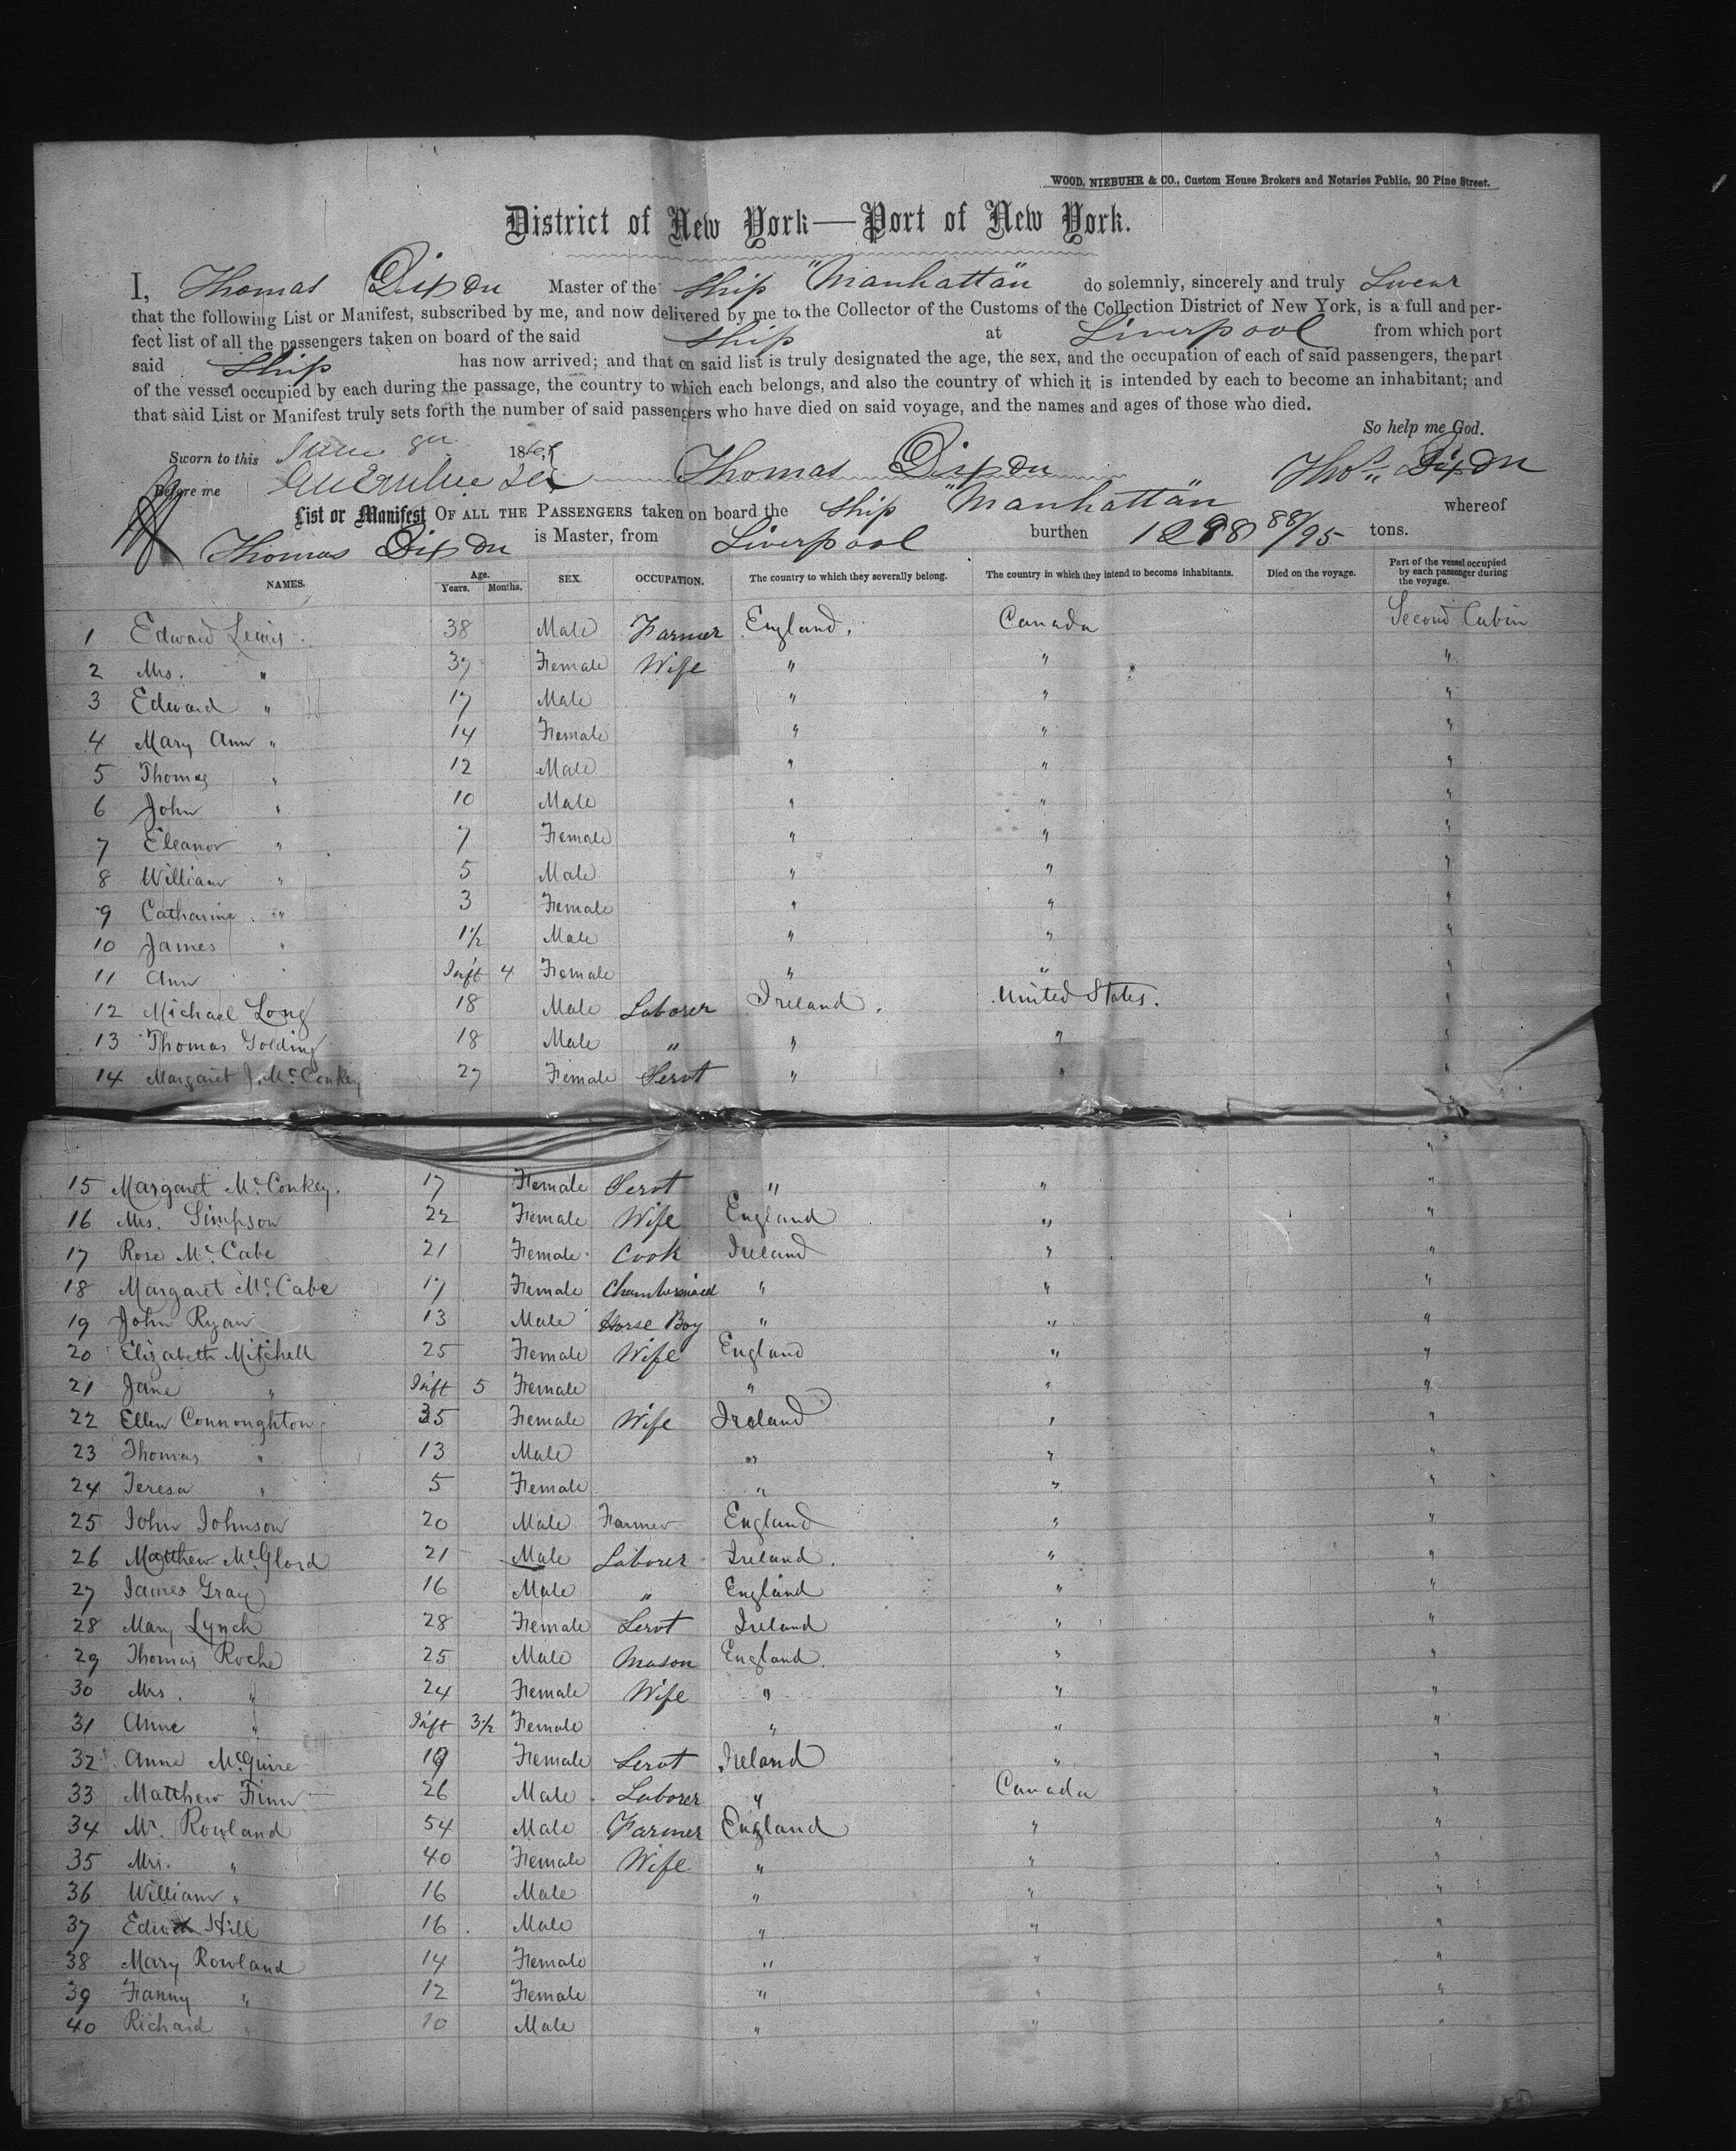 WOOD, NIEBUHR & CO., Custom House Brokers and Notaries Public, 20 Pine Street.
District of New York—Port of New York.
I, Thomas Dixon Master of the Ship "Manhattan" do solemnly, sincerely and truly Swear
that the following List or Manifest, subscribed by me, and now delivered by me to the Collector of the Customs of the Collection District of New York, is a full and per-
fect list of all the passengers taken on board of the said Ship at Liverpool from which port
said Ship has now arrived; and that on said list is truly designated the age, the sex, and the occupation of each of said passengers, the part
of the vessel occupied by each during the passage, the country to which each belongs, and also the country of which it is intended by each to become an inhabitant; and
that said List or Manifest truly sets forth the number of said passengers who have died on said voyage, and the names and ages of those who died.
So help me God.
Sworn to this June 8th 186
Before me Thomas Dixon Thos. Dixon
List or Manifest OF ALL THE PASSENGERS taken on board the Ship "Manhattan" whereof
Thomas Dixon is Master, from Liverpool burthen 1298 88/95 tons.
NAMES. Age. Years. Months. SEX. OCCUPATION. The country to which they severally belong. The country in which they intend to become inhabitants. Died on the voyage. Part of the vessel occupied by each passenger during the voyage.
1 Edward Lewis 38 Male Farmer England. Canada Second Cabin
2 Mrs. " 37 Female Wife " " "
3 Edward " 17 Male " " "
4 Mary Ann " 14 Female " " "
5 Thomas " 12 Male " " "
6 John " 10 Male " " "
7 Eleanor " 7 Female " " "
8 William " 5 Male " " "
9 Catharine " 3 Female " " "
10 James " 1½ Male " " "
11 Ann " Inft 4 Female " " "
12 Michael Long 18 Male Laborer Ireland. United States. "
13 Thomas Golding 18 Male " " " "
14 Margaret J. McConkey 27 Female Servt " " "
15 Margaret McConkey. 17 Female Servt " " "
16 Mrs. Simpson 22 Female Wife England " "
17 Rose McCabe 21 Female Cook Ireland " "
18 Margaret McCabe 17 Female Chambermaid " " "
19 John Ryan 13 Male Horse Boy " " "
20 Elizabeth Mitchell 25 Female Wife England " "
21 Jane " Inft 5 Female " " "
22 Ellen Connoughton 35 Female Wife Ireland " "
23 Thomas " 13 Male " " "
24 Teresa " 5 Female " " "
25 John Johnson 20 Male Farmer England " "
26 Matthew McGlord 21 Male Laborer Ireland. " "
27 James Gray 16 Male " England " "
28 Mary Lynch 28 Female Servt Ireland " "
29 Thomas Roche 25 Male Mason England. " "
30 Mrs. " 24 Female Wife " " "
31 Anne " Inft 3½ Female " " "
32 Anne McGuire 19 Female Servt Ireland " "
33 Matthew Finn 26 Male Laborer " Canada "
34 Mr. Rowland 54 Male Farmer England " "
35 Mrs. " 40 Female Wife " " "
36 William " 16 Male " " "
37 Edwin Hill 16 Male " " "
38 Mary Rowland 14 Female " " "
39 Fanny " 12 Female " " "
40 Richard " 10 Male " " "